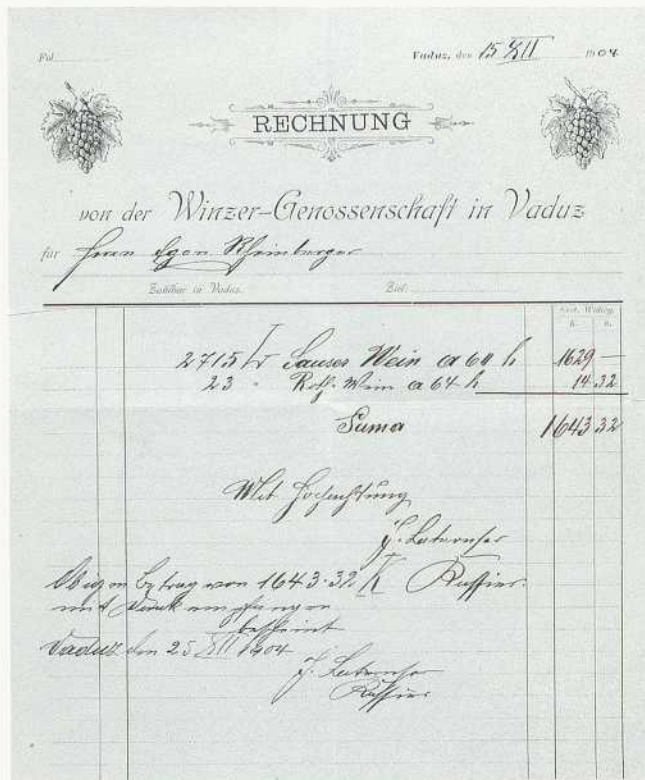 Fol.
Vaduz, den 15 XII 1904
RECHNUNG
von der Winzer-Genossenschaft in Vaduz
für Herrn Egon Rheinberger
Zahlbar in Vaduz. Ziel:
Oest. Währg.
2715 ltr Sauser Wein a 60 h 1629 —
23 " Roth. Wein a 64 h 14 32
Suma 1643 32
Mit Hochachtung
J. Laternser
Kassier.
Obigen Betrag von 1643·32 K
mit Dank empfangen
bescheint
Vaduz den 25 XII 1904
J. Laternser
Kassier